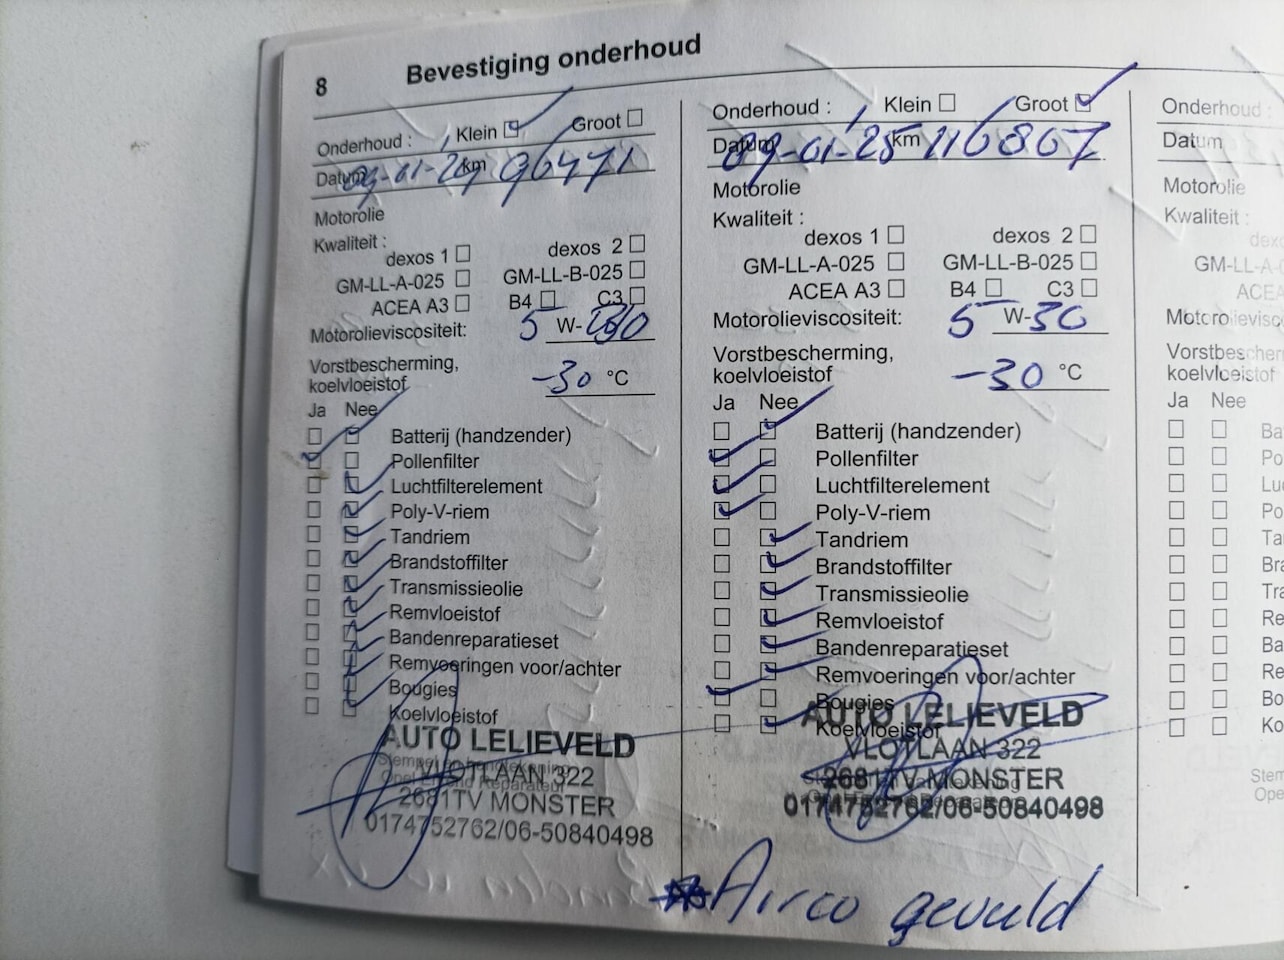 8 Bevestiging onderhoud
Onderhoud : Klein Groot
Datum 09-01-24 km 96471
Motorolie
Kwaliteit :
dexos 1 dexos 2
GM-LL-A-025 GM-LL-B-025
ACEA A3 B4 C3
Motorolieviscositeit: 5 W-30
Vorstbescherming,
koelvloeistof -30 °C
Ja Nee
Batterij (handzender)
Pollenfilter
Luchtfilterelement
Poly-V-riem
Tandriem
Brandstoffilter
Transmissieolie
Remvloeistof
Bandenreparatieset
Remvoeringen voor/achter
Bougies
Koelvloeistof
AUTO LELIEVELD
VLOTLAAN 322
2681TV MONSTER
0174752762/06-50840498
Onderhoud : Klein Groot
Datum 09-01-25 km 116867
Motorolie
Kwaliteit :
dexos 1 dexos 2
GM-LL-A-025 GM-LL-B-025
ACEA A3 B4 C3
Motorolieviscositeit: 5 W-30
Vorstbescherming,
koelvloeistof -30 °C
Ja Nee
Batterij (handzender)
Pollenfilter
Luchtfilterelement
Poly-V-riem
Tandriem
Brandstoffilter
Transmissieolie
Remvloeistof
Bandenreparatieset
Remvoeringen voor/achter
Bougies
Koelvloeistof
AUTO LELIEVELD
VLOTLAAN 322
2681TV MONSTER
0174752762/06-50840498
Airco gevuld
Onderhoud :
Datum
Motorolie
Kwaliteit :
dexo
GM-LL-A
ACEA
Motorolievisc
Vorstbescher
koelvloeistof
Ja Nee
Ba
Po
Lu
Po
Ta
Br
Tr
Re
Ba
Re
Bo
Ko
Stem
Ope